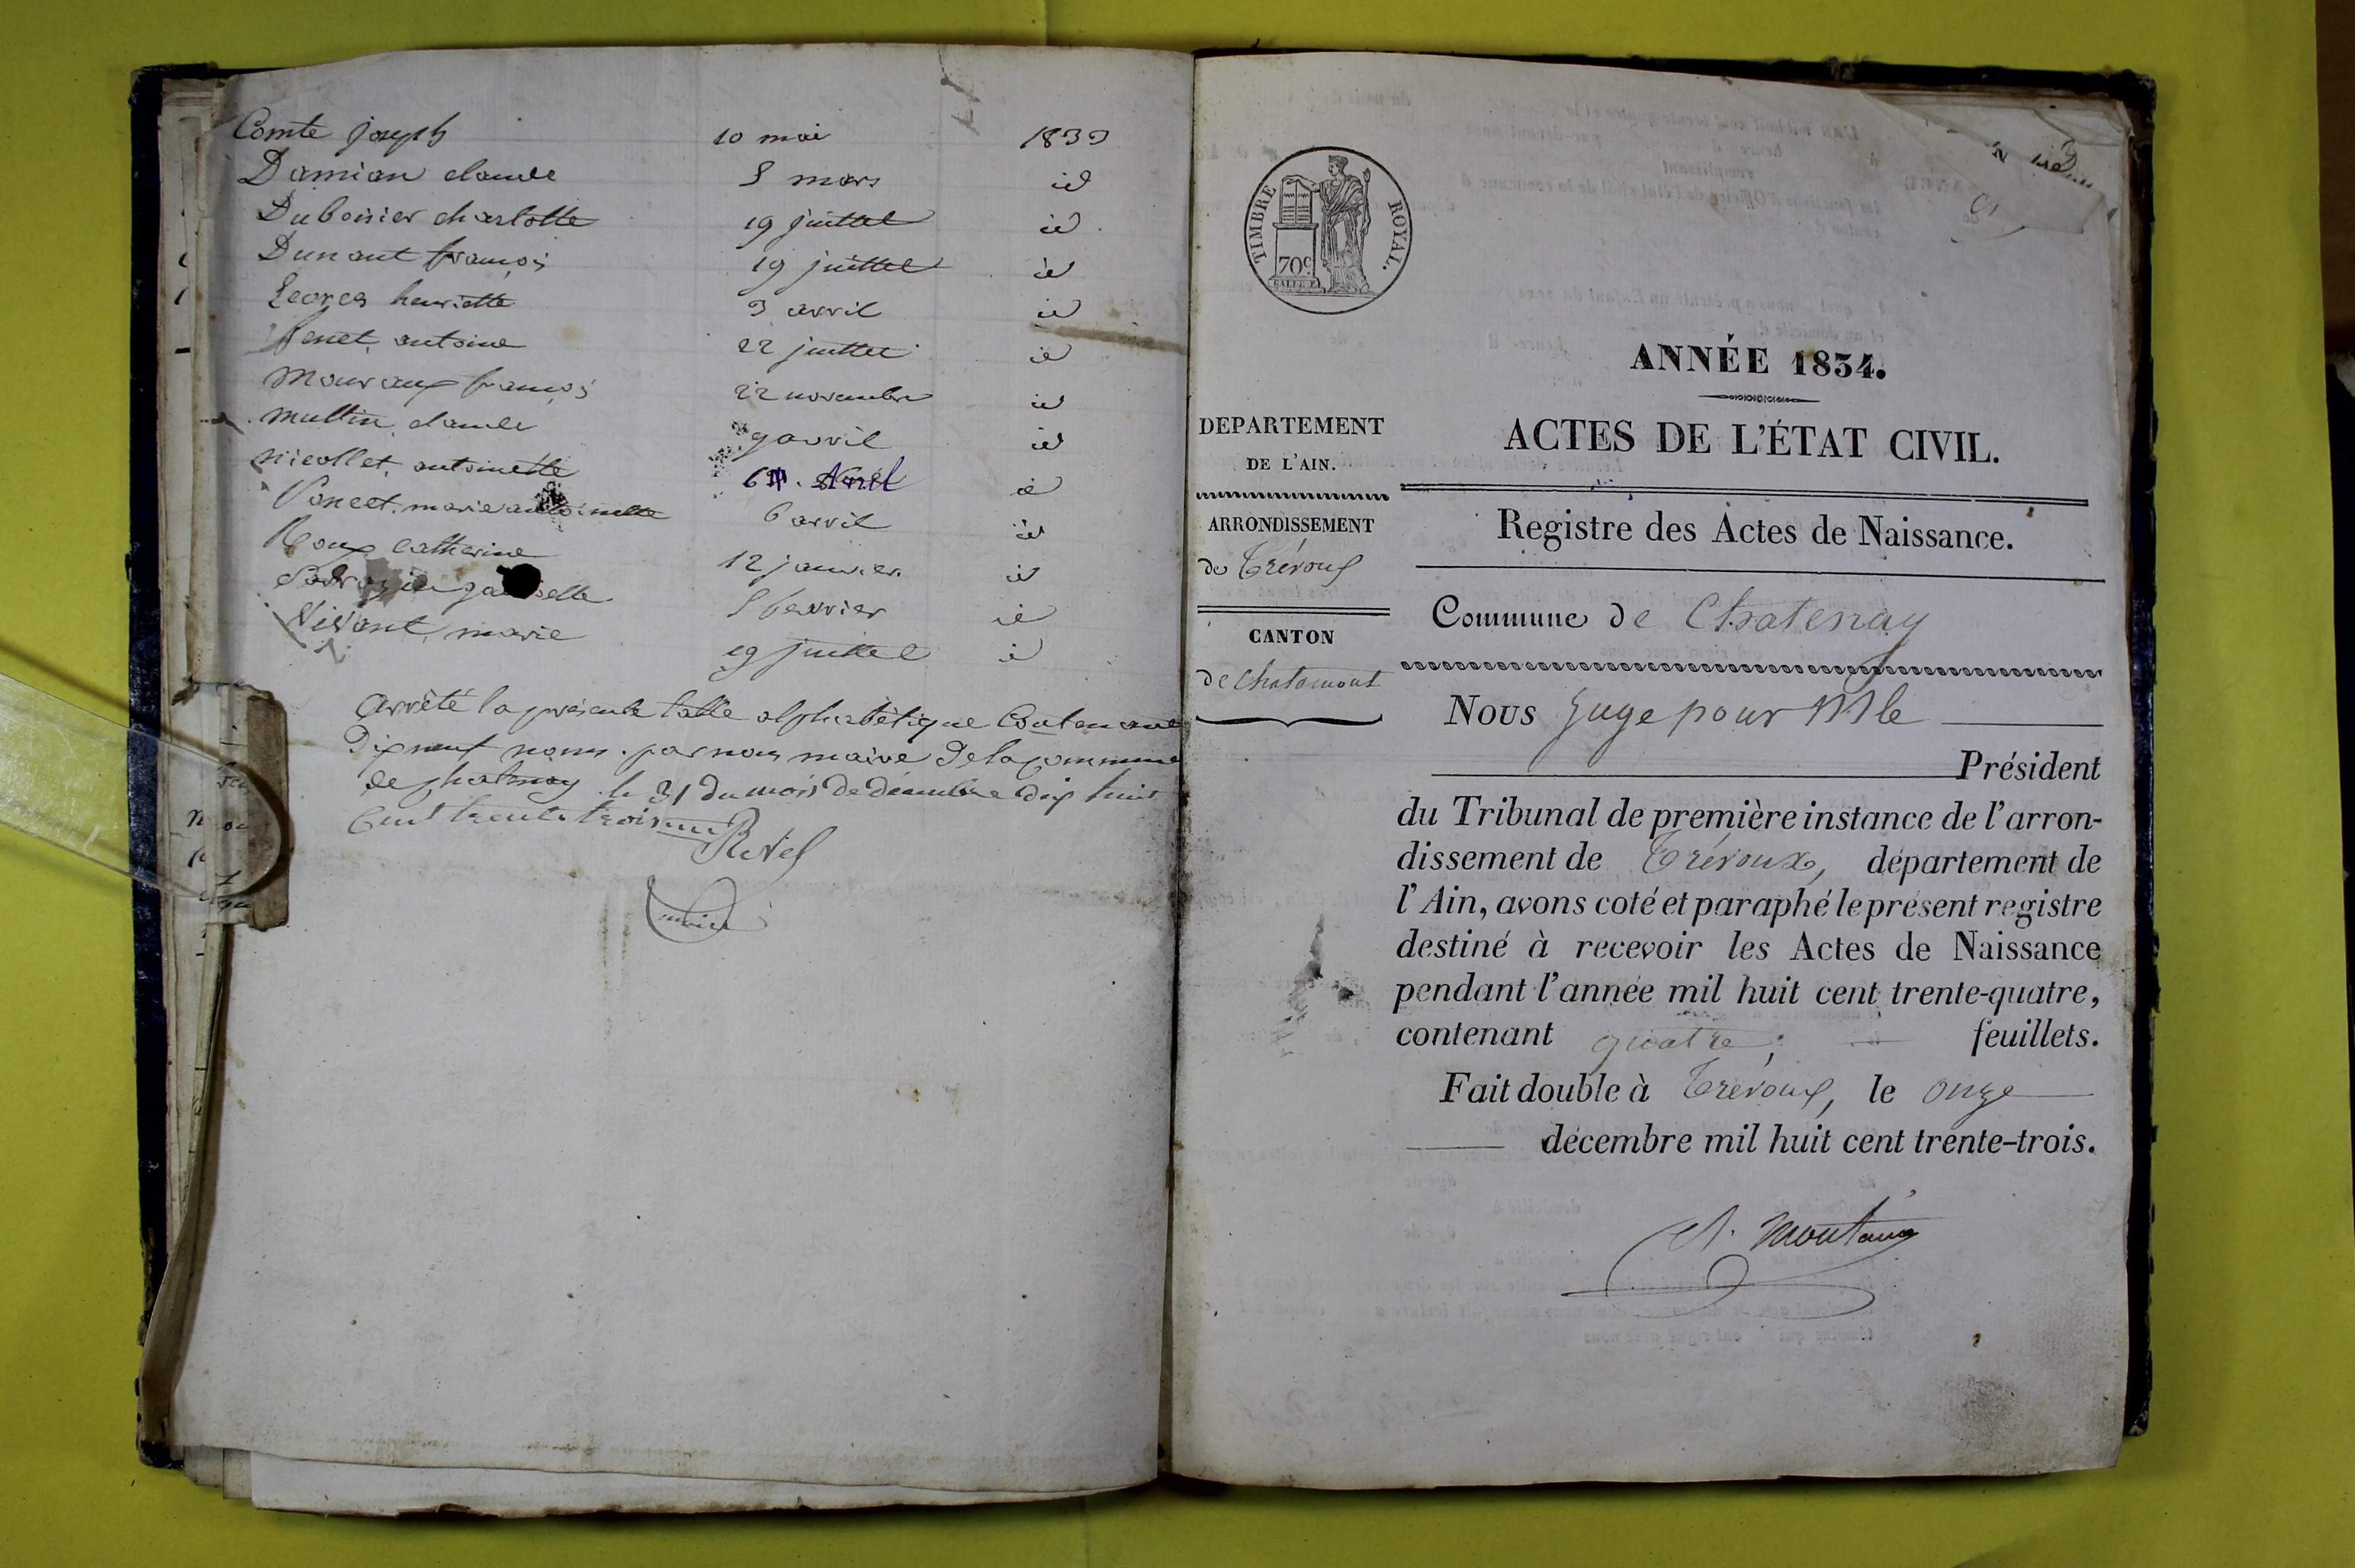 Comte joseph 10 mai 1833
Damian claude 8 mars id
Duboisier charlotte 19 juillet id
Dunant françois 19 juillet id
henriette 3 avril id
antoine 22 juillet id
françois 22 novembre id
multin claude 9 avril id
nicollet antoinette 6 Avril id
Poncet marie antoinette 6 avril id
Roux catherine 12 janvier id
8 fevrier id
Vivant marie 19 juillet id
Arrêté la présente table alphabétique Contenant
Dix neuf noms par nous maire De la Commune
de chatenay le 31 Du mois De décembre dix huit
Cent trente trois
maire
TIMBRE ROYAL.
70c
ANNÉE 1834.
ACTES DE L'ÉTAT CIVIL.
DEPARTEMENT
DE L'AIN.
ARRONDISSEMENT
de Trévoux
CANTON
de Chalamont
Registre des Actes de Naissance.
Commune de Chatenay
Nous Juge pour Mr le
Président
du Tribunal de première instance de l'arron-
dissement de Trévoux, département de
l'Ain, avons coté et paraphé le présent registre
destiné à recevoir les Actes de Naissance
pendant l'année mil huit cent trente-quatre,
contenant quatre, feuillets.
Fait double à Trévoux, le onze
décembre mil huit cent trente-trois.